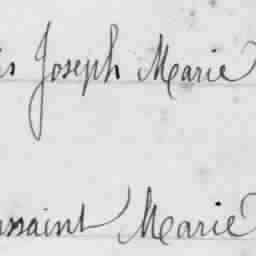 is Joseph Marie
ssaint Marie